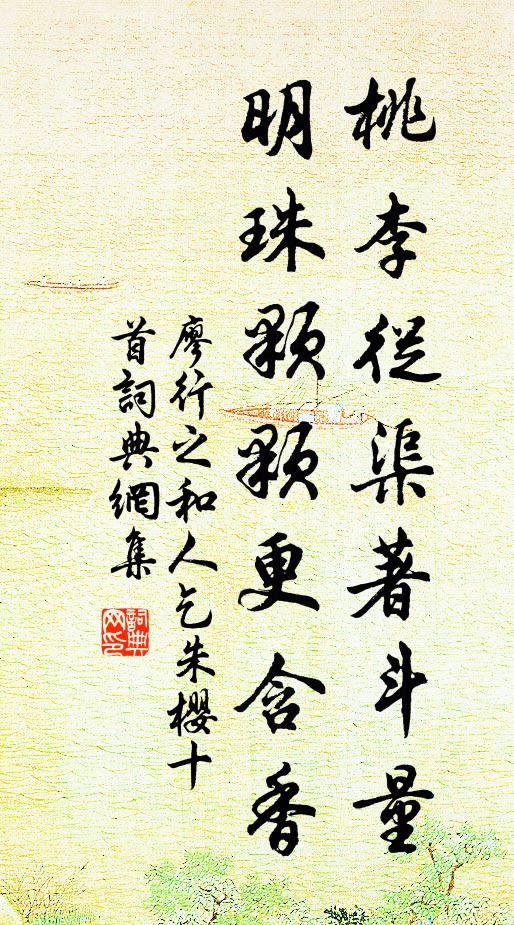 桃李從渠著斗量
明珠顆顆更含香
廖行之和人乞朱櫻十
首詞典網集
詞典
网印